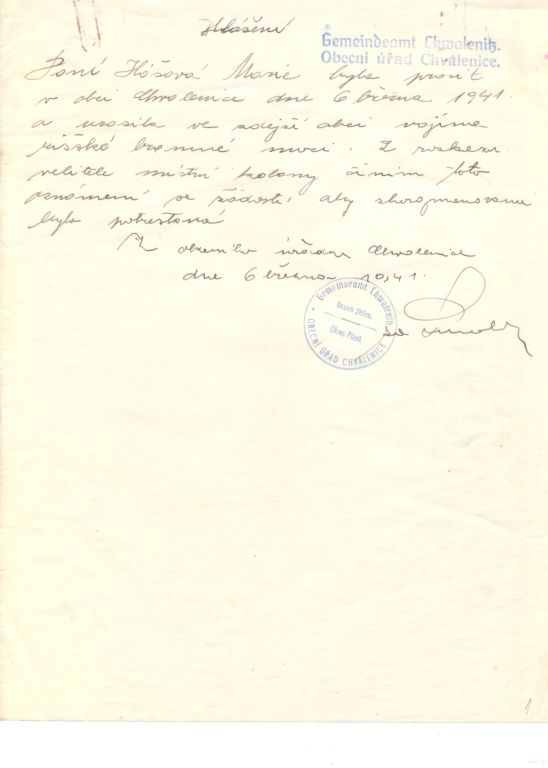 Hlášení
Gemeindeamt Chwalenitz.
Obecní úřad Chválenice.
Paní Marie byla prosit
v obci Chvalenice dne 6 března 1941.
a urazila ve zdejší obci vojína
říšské branné moci. Z rozkazu
velitele místní kolony činím toto
oznámení se žádostí, aby shorajmenovaná
byla potrestaná
Z obecního úřadu Chvalenice
dne 6 března 1941.
Gemeindeamt Chwalenitz
Bezirk Pilsen.
Okres Plzeň.
OBECNÍ ÚŘAD CHVÁLENICE
1